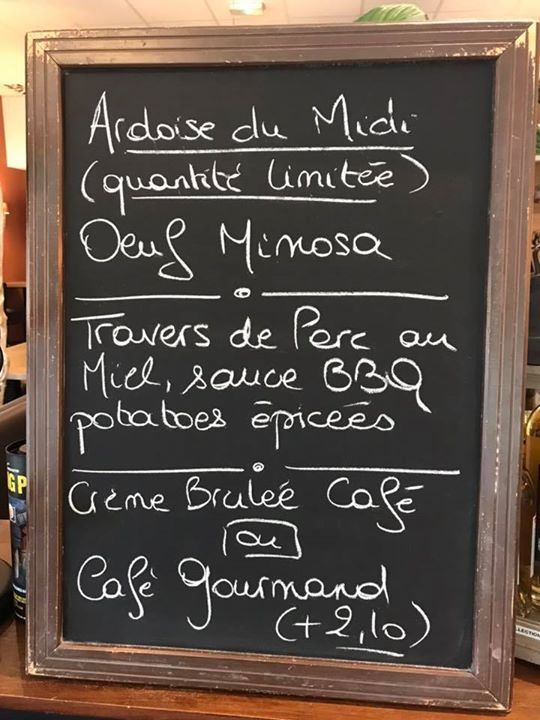 Ardoise du Midi
(quantité limitée)
Oeuf Mimosa
Travers de Porc au
Miel, sauce BBQ
potatoes épiceés
Crème Bruleé Café
ou
Café gourmand
(+2,10)
GP